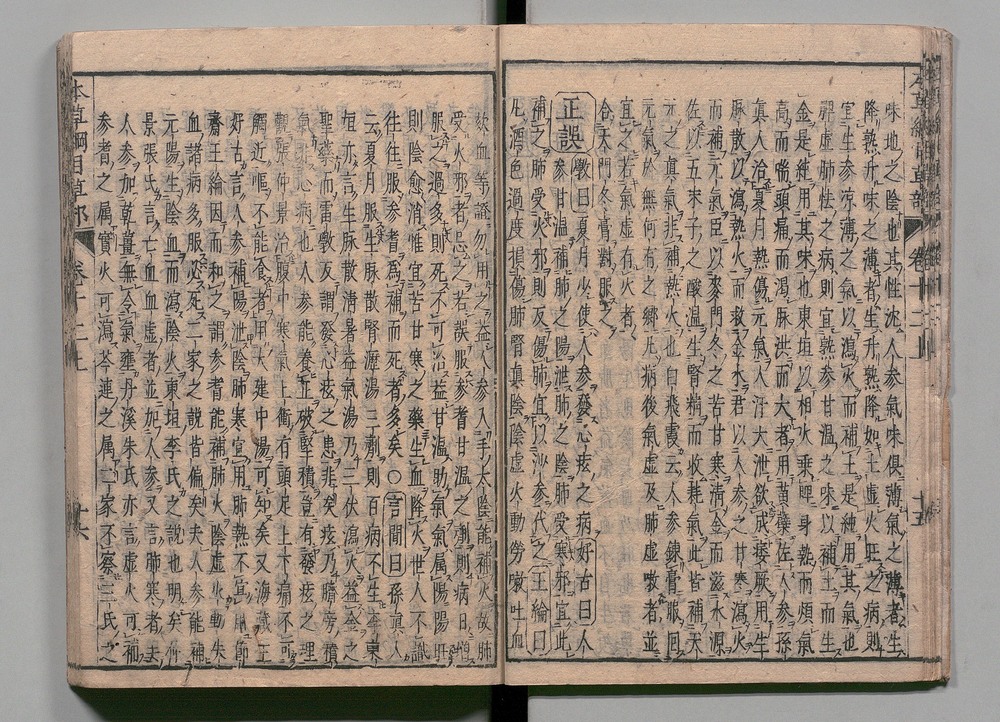 味地之陰也其性沈人参氣味俱薄氣之薄者生
降熟升味之薄者生升熟降如土虚火旺之病則
宜生参凉薄之氣以瀉火而補土是純用其氣也
脾虚肺怯之病則宜熟参甘温之味以補土而生
金是純用其味也東垣以相火乗脾身熱而煩氣
高而喘頭痛而渇脉洪而大者用黄蘗佐人参孫
真人治夏月熱傷元氣人汗大泄欲成痿厥用生
脉散以瀉熱火而救金水君以人参之甘寒瀉火
而補元氣臣以麥門冬之苦甘寒清金而滋水源
佐以五味子之酸温生腎精而收耗氣此皆補天
元之真氣非補熱火也白飛霞云人参錬膏服回
元氣於無何有之郷凡病後氣虚及肺虚嗽者並
宜之若氣虚有火者
合天門冬膏對服之
正誤 斅曰夏月少使人参發心痃之病好古曰人
参甘温補肺之陽泄肺之陰肺受寒邪宜此
補之肺受火邪則反傷肺宜以沙参代之王綸曰
凡酒色過度損傷肺腎真陰陰虚火動勞嗽吐血
欬血等證勿用之益人参入手太陰能補火故肺
受火邪者忌之若誤服参耆甘温之劑則病日増
服之過多則死不可治益甘温助氣氣属陽陽旺
則陰愈消惟宜苦甘寒之藥生血降火世人不識
往往服参耆為補而死者多矣○言聞曰孫真人
云夏月服生脉散腎瀝湯三劑則百病不生李東
垣亦言生脉散清暑益氣湯乃三伏瀉火益金之
聖藥而雷斅反謂發心痃之患非矣痃乃臍旁積
氣非心病也人参能養正破堅積豈有發痃之理
觀張仲景治腹中寒氣上衝有頭足上下痛不可
觸近嘔不能食者用大建中湯可知矣又海藏王
好古言人参補陽泄陰肺寒宜用肺熱不宜用節
齋王綸因而和之謂参耆能補肺火陰虚火動失
血諸病多服必死二家之説皆偏矣夫人参能補
元陽生陰血而瀉陰火東垣李氏之説也明矣仲
景張氏言亡血血虚者並加人参又言肺寒者去
人参加乾薑無令氣壅丹溪朱氏亦言虚火可補
参耆之属實火可瀉芩連之属二家不察三氏之
本草綱目草部 卷十二上 十五
本草綱目草部 卷十二上 十六